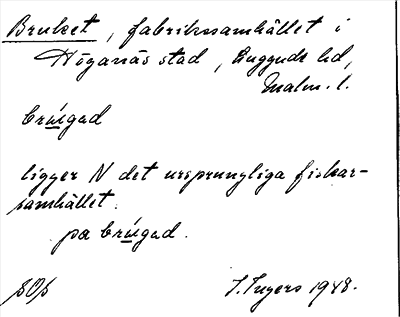 Bruket, fabrikssamhället i
Höganäs stad, Luggude hd,
Malm. l.
brúgad
ligger N det ursprungliga fiskar-
samhället.
pa brúgad.
I. Ingers 1948.